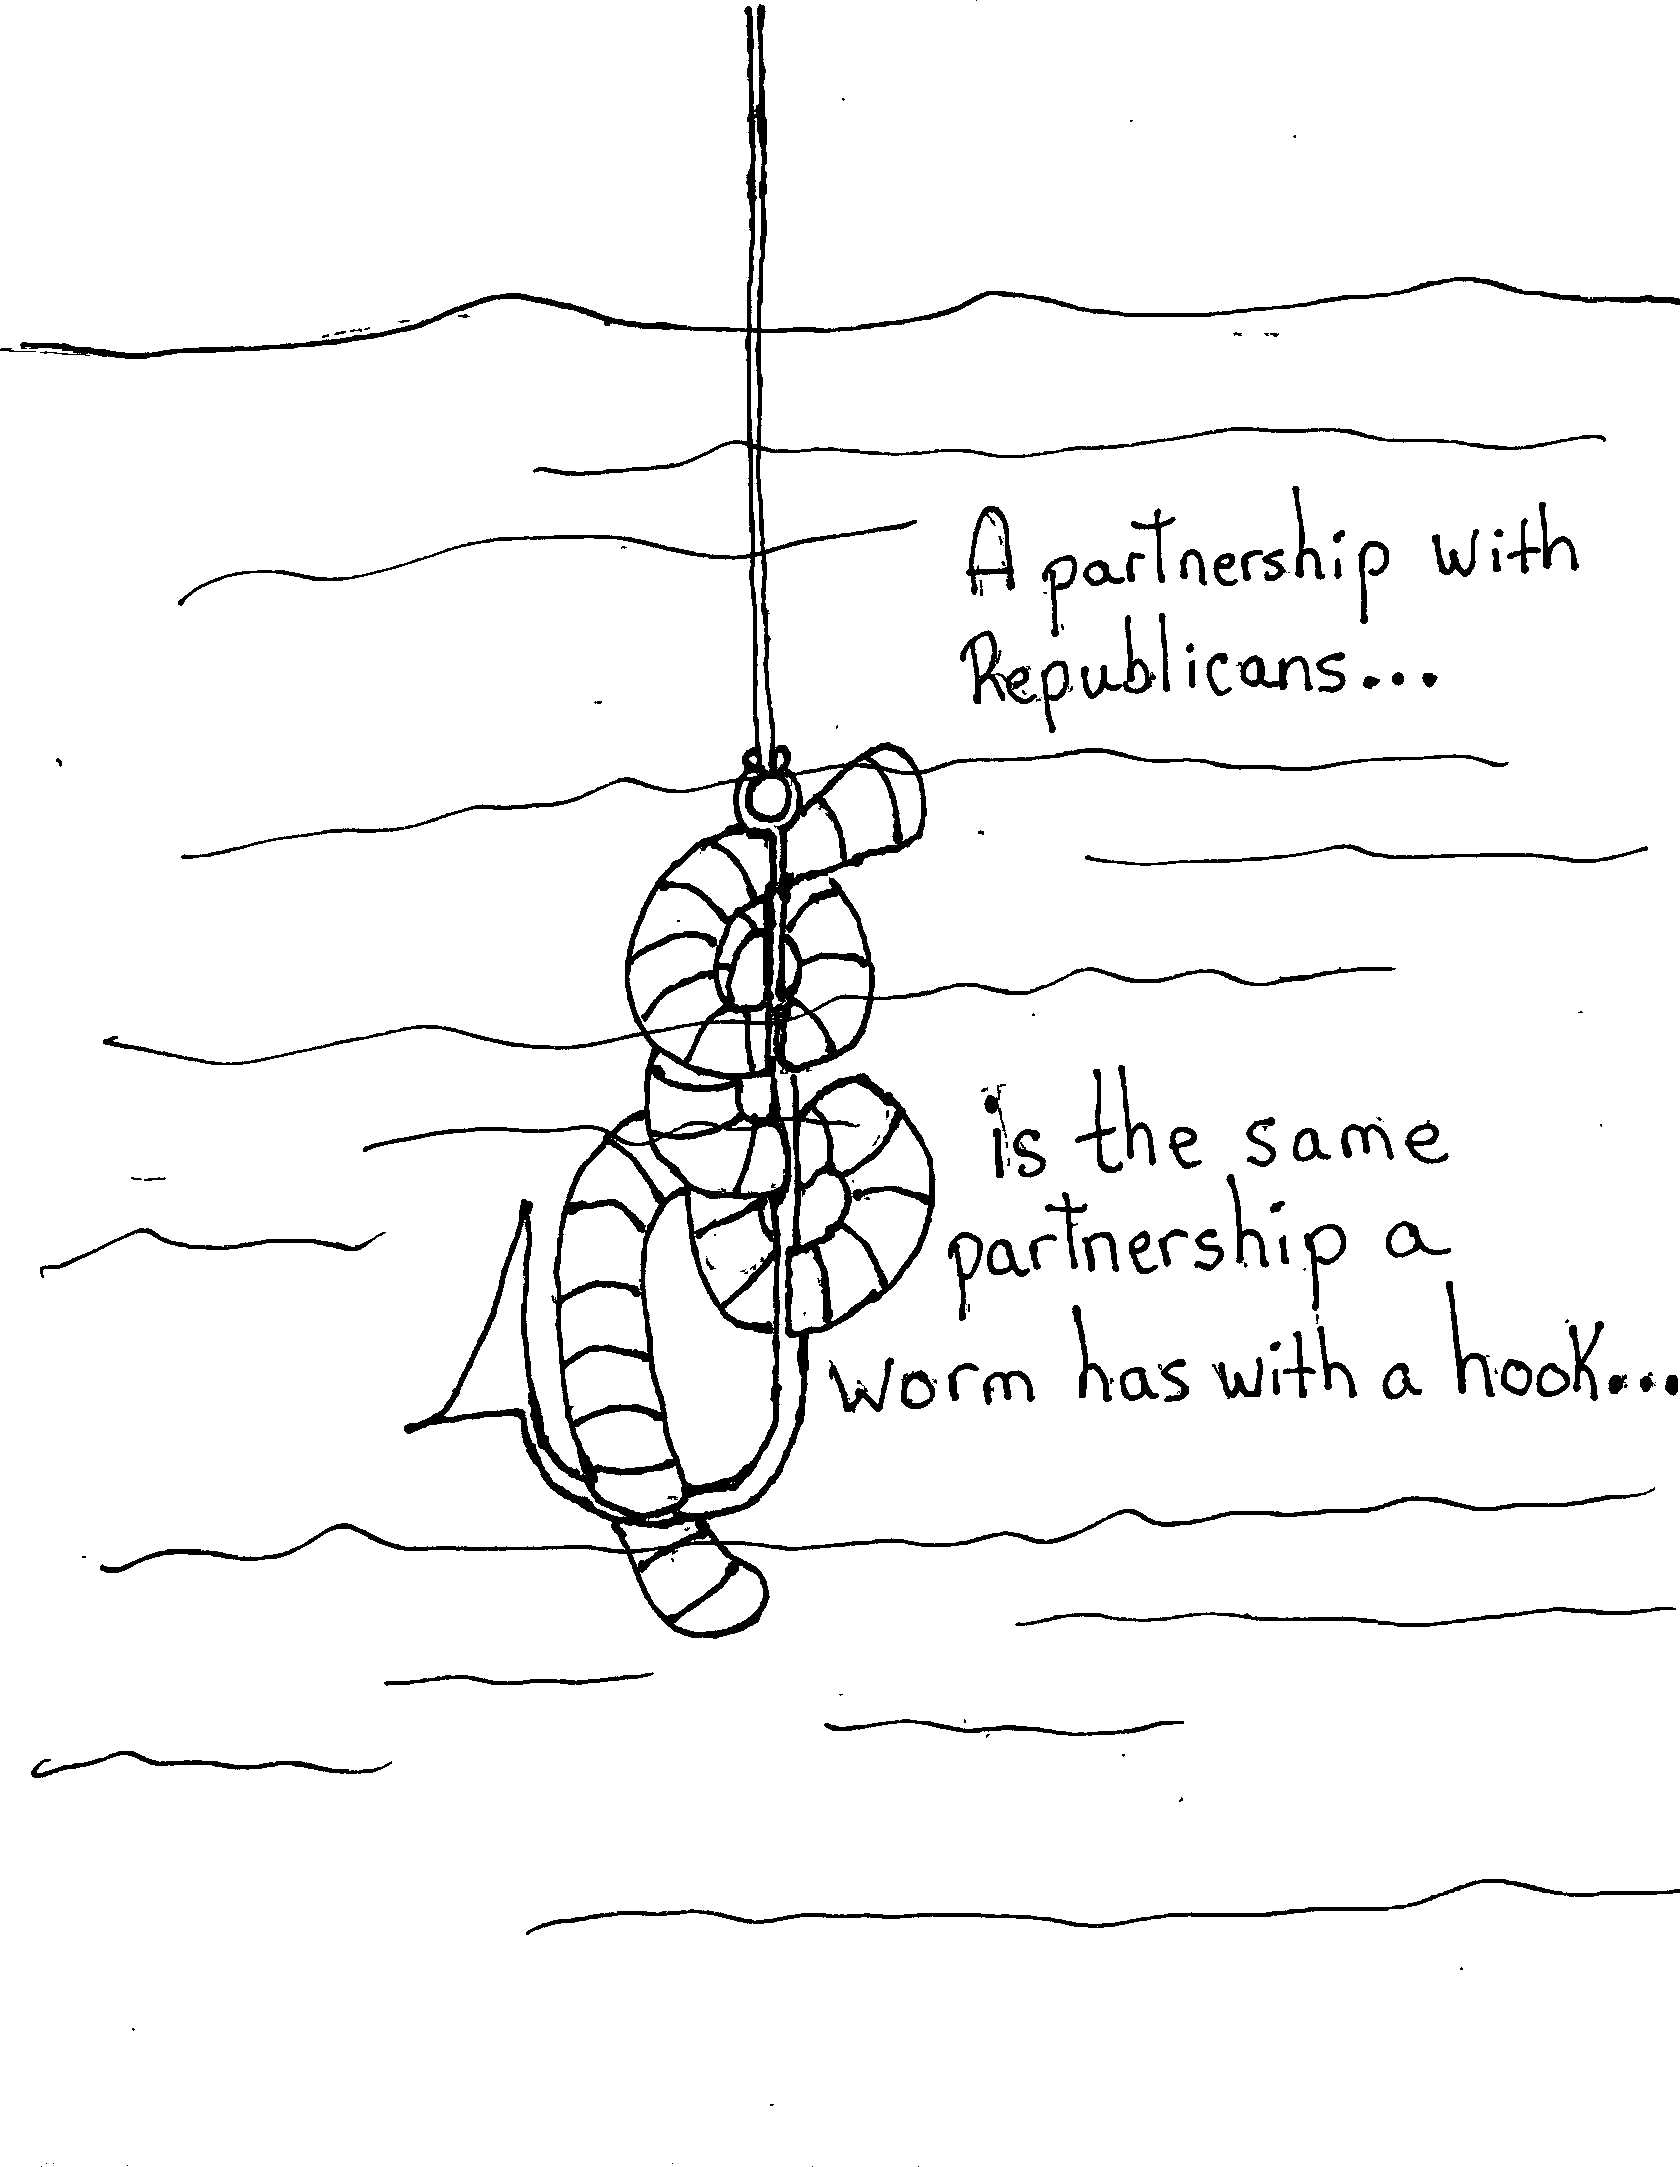 A partnership with
Republicans...
is the same
partnership a
worm has with a hook...